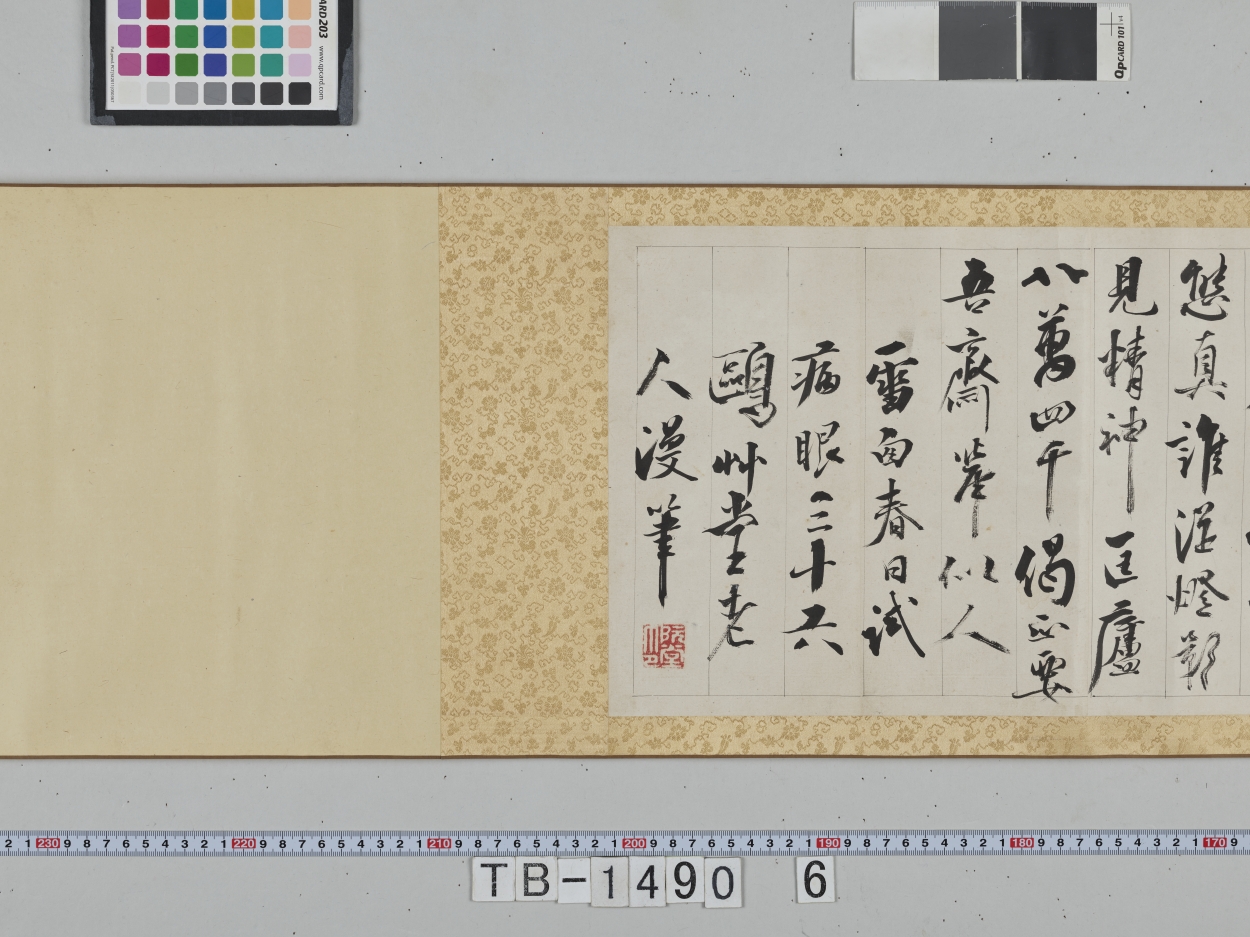 CARD 203
www.qpcard.com
QPCARD 101 v4
態真誰從燈影
見精神匡廬
八萬四千偈正要
吾齋舉似人
雪囱春日試
病眼三十六
鷗艸堂老
人漫筆
阮堂
2 1 230 9 8 7 6 5 4 3 2 1 220 9 8 7 6 5 4 3 2 1 210 9 8 7 6 5 4 3 2 1 200 9 8 7 6 5 4 3 2 1 190 9 8 7 6 5 4 3 2 1 180 9 8 7 6 5 4 3 2 1 170 9
TB-1490 6